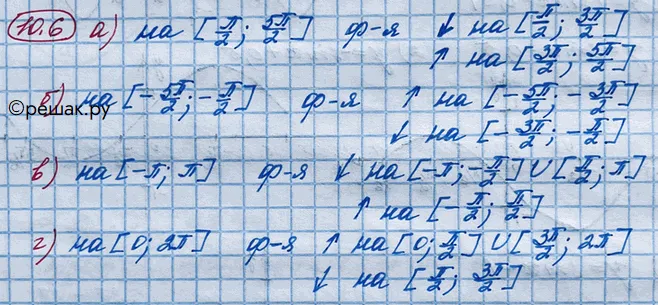 10.6 а) на [π/2; 5π/2] ф-я ↓ на [π/2; 3π/2]
↑ на [3π/2; 5π/2]
б) на [-5π/2; -π/2] ф-я ↑ на [-5π/2; -3π/2]
©решак.ру
↓ на [-3π/2; -π/2]
в) на [-π; π] ф-я ↓ на [-π; -π/2] ∪ [π/2; π]
↑ на [-π/2; π/2]
г) на [0; 2π] ф-я ↑ на [0; π/2] ∪ [3π/2; 2π]
↓ на [π/2; 3π/2]